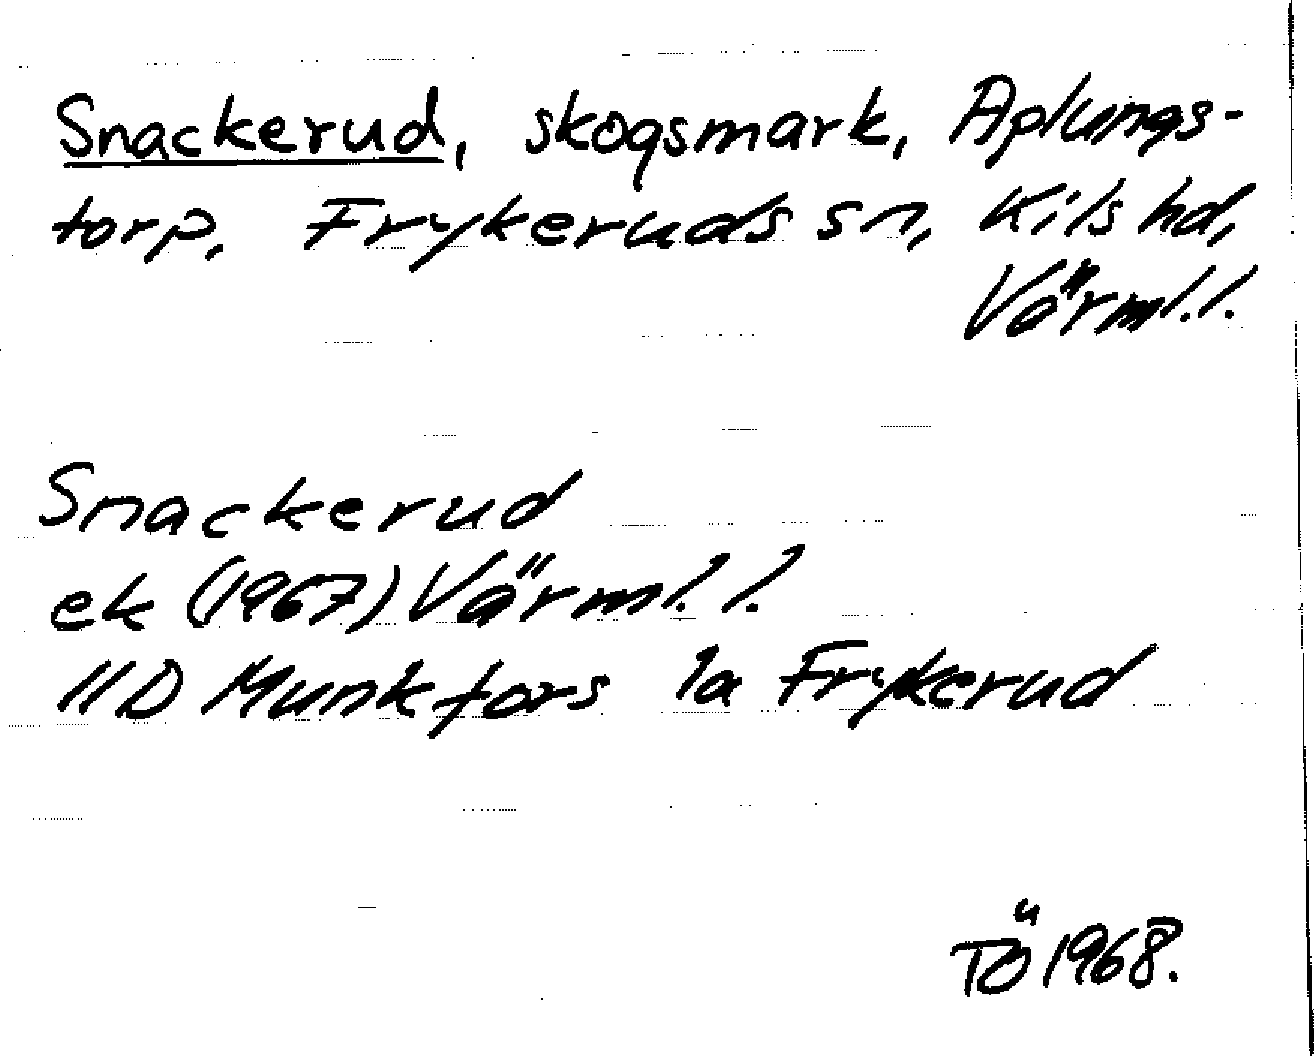 Snackerud, skogsmark, Aplungs-
torp, Frykeruds sn, Kils hd,
Värml.l.
Snackerud
ek (1967) Värml.l.
11D Munkfors 1a Frykerud
TÖ 1968.